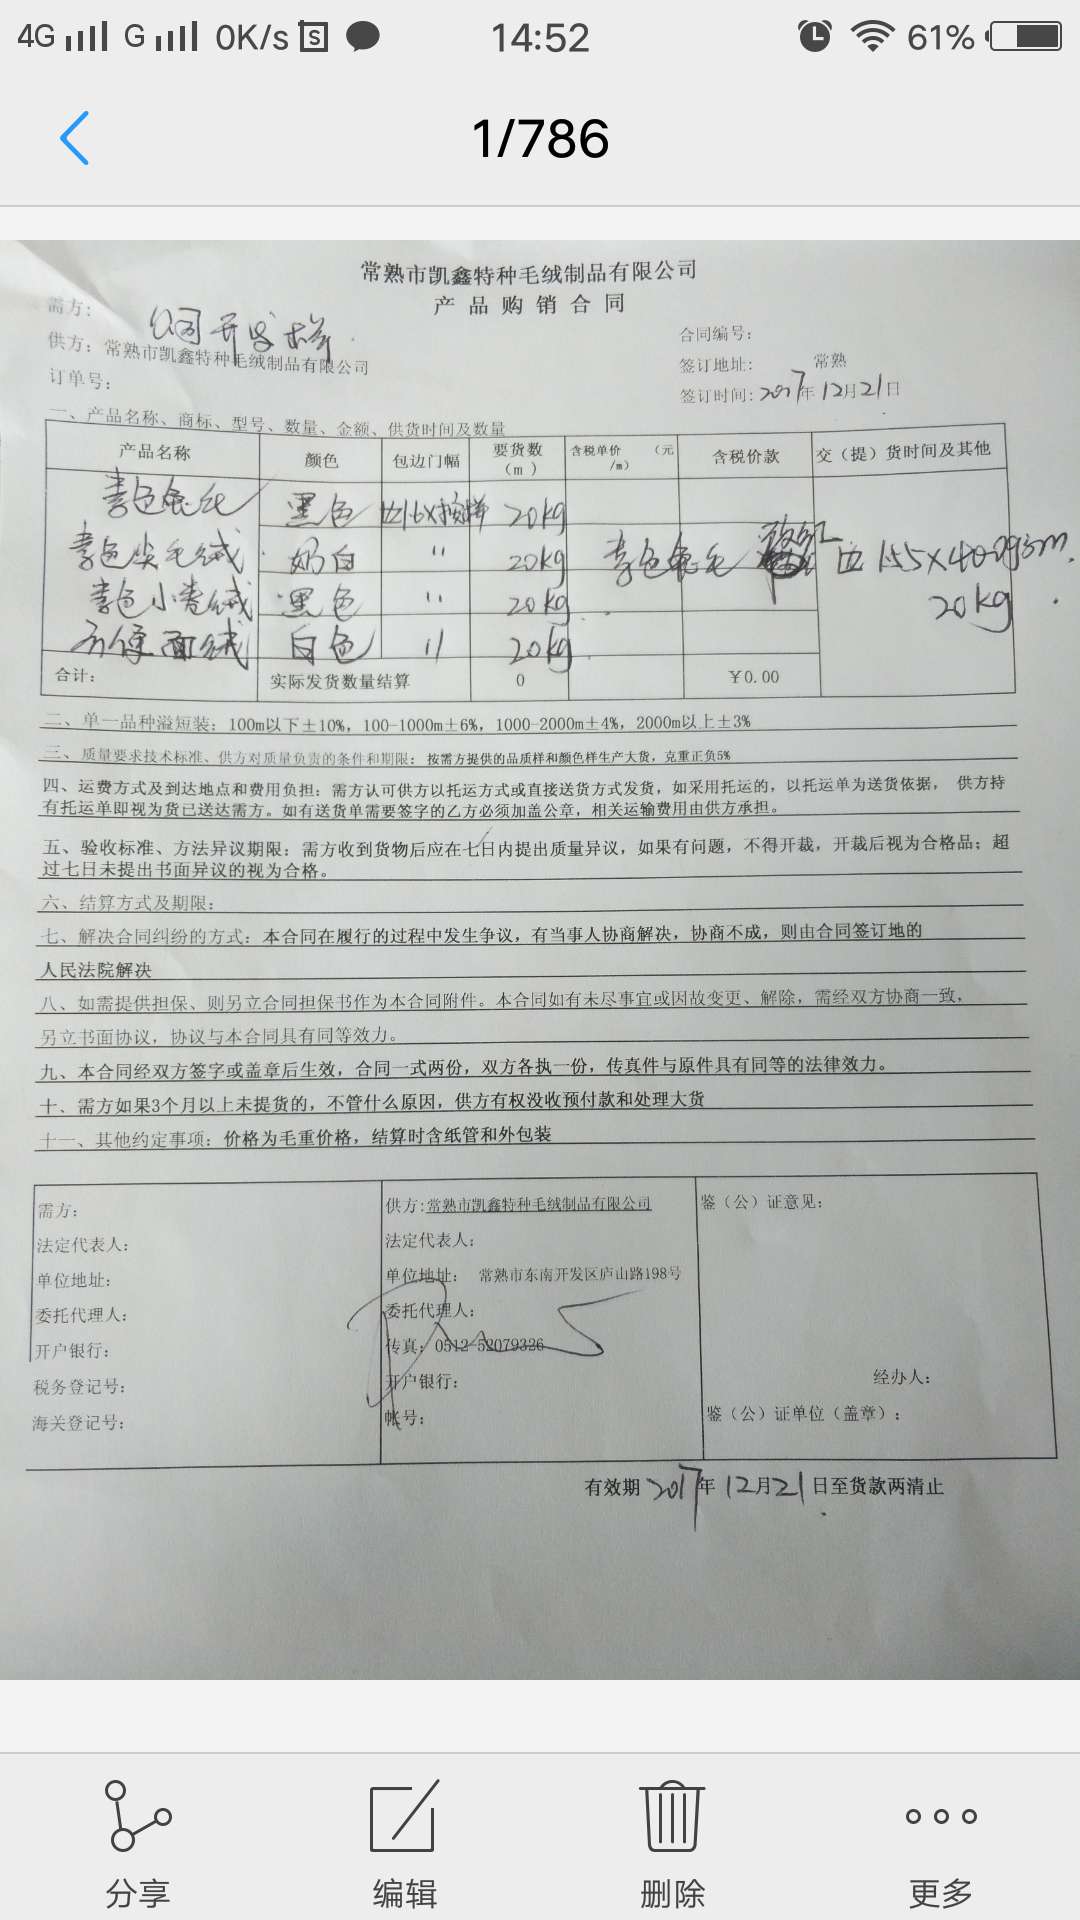 4G G 0K/s S 14:52 61%
1/786
常熟市凯鑫特种毛绒制品有限公司
产品购销合同
需方: 公司开发样
供方: 常熟市凯鑫特种毛绒制品有限公司
订单号:
合同编号:
签订地址: 常熟
签订时间: 2017年12月21日
一、产品名称、商标、型号、数量、金额、供货时间及数量
产品名称 颜色 包边门幅 要货数(m) 含税单价(元/m) 含税价款 交(提)货时间及其他
素色 黑色 1.6X按样 20kg
素色尖毛绒 奶白 " 20kg 素色 毛 155X400g/m 20kg
素色小卷绒 黑色 " 20kg
方便面绒 白色 " 20kg
合计: 实际发货数量结算 0 ¥0.00
二、单一品种溢短装: 100m以下±10%, 100-1000m±6%, 1000-2000m±4%, 2000m以上±3%
三、质量要求技术标准、供方对质量负责的条件和期限: 按需方提供的品质样和颜色样生产大货, 克重正负5%
四、运费方式及到达地点和费用负担: 需方认可供方以托运方式或直接送货方式发货, 如采用托运的, 以托运单为送货依据, 供方持
有托运单即视为货已送达需方。如有送货单需要签字的乙方必须加盖公章, 相关运输费用由供方承担。
五、验收标准、方法异议期限: 需方收到货物后应在七日内提出质量异议, 如果有问题, 不得开裁, 开裁后视为合格品; 超
过七日未提出书面异议的视为合格。
六、结算方式及期限:
七、解决合同纠纷的方式: 本合同在履行的过程中发生争议, 有当事人协商解决, 协商不成, 则由合同签订地的
人民法院解决
八、如需提供担保、则另立合同担保书作为本合同附件。本合同如有未尽事宜或因故变更、解除, 需经双方协商一致,
另立书面协议, 协议与本合同具有同等效力。
九、本合同经双方签字或盖章后生效, 合同一式两份, 双方各执一份, 传真件与原件具有同等的法律效力。
十、需方如果3个月以上未提货的, 不管什么原因, 供方有权没收预付款和处理大货
十一、其他约定事项: 价格为毛重价格, 结算时含纸管和外包装
需方:
法定代表人:
单位地址:
委托代理人:
开户银行:
税务登记号:
海关登记号:
供方:常熟市凯鑫特种毛绒制品有限公司
法定代表人:
单位地址: 常熟市东南开发区庐山路198号
委托代理人:
传真: 0512-52079326
开户银行:
帐号:
鉴(公)证意见:
经办人:
鉴(公)证单位(盖章):
有效期 2017年12月21日至货款两清止
分享 编辑 删除 更多